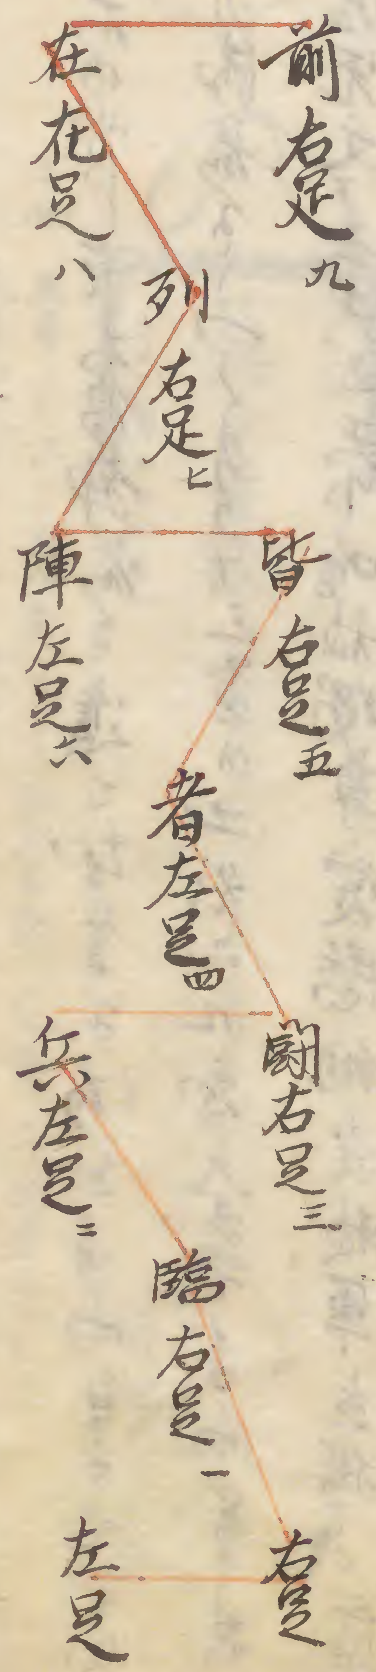 前 右足 九
在 左足 八
列 右足 七
皆 右足 五
陣 左足 六
者 左足 四
闘 右足 三
兵 左足 二
臨 右足 一
右足
左足